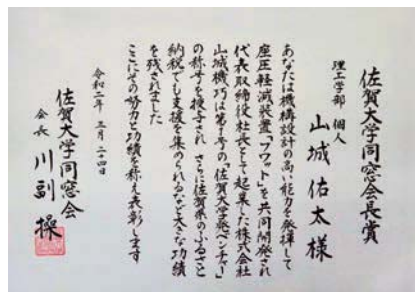 佐賀大学同窓会長賞
理工学部 個人
山城佑太様
あなたは機構設計の高い能力を発揮して
座圧軽減装置「フワット」を共同開発され
代表取締役社長として起業した株式会社
山城機巧は第1号の「佐賀大学発ベンチャー」
の称号を授与され さらに佐賀県のふるさと
納税でも支援を集められるなど大きな功績
を残されました
ここにその努力と功績を称え表彰します
令和二年 三月二十四日
佐賀大学同窓会
会長 川副操